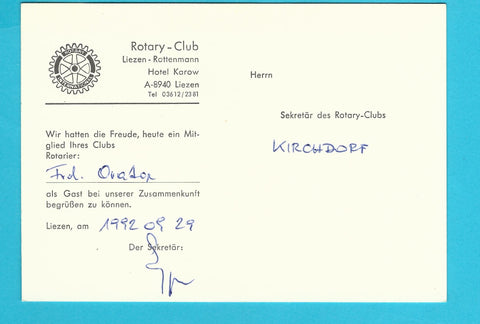 Rotary-Club
Liezen-Rottenmann
Hotel Karow
A-8940 Liezen
Tel 03612/2381
Wir hatten die Freude, heute ein Mit-
glied Ihres Clubs
Rotarier:
Frd.
als Gast bei unserer Zusammenkunft
begrüßen zu können.
Liezen, am 1992 09 29
Der Sekretär:
Herrn
Sekretär des Rotary-Clubs
KIRCHDORF